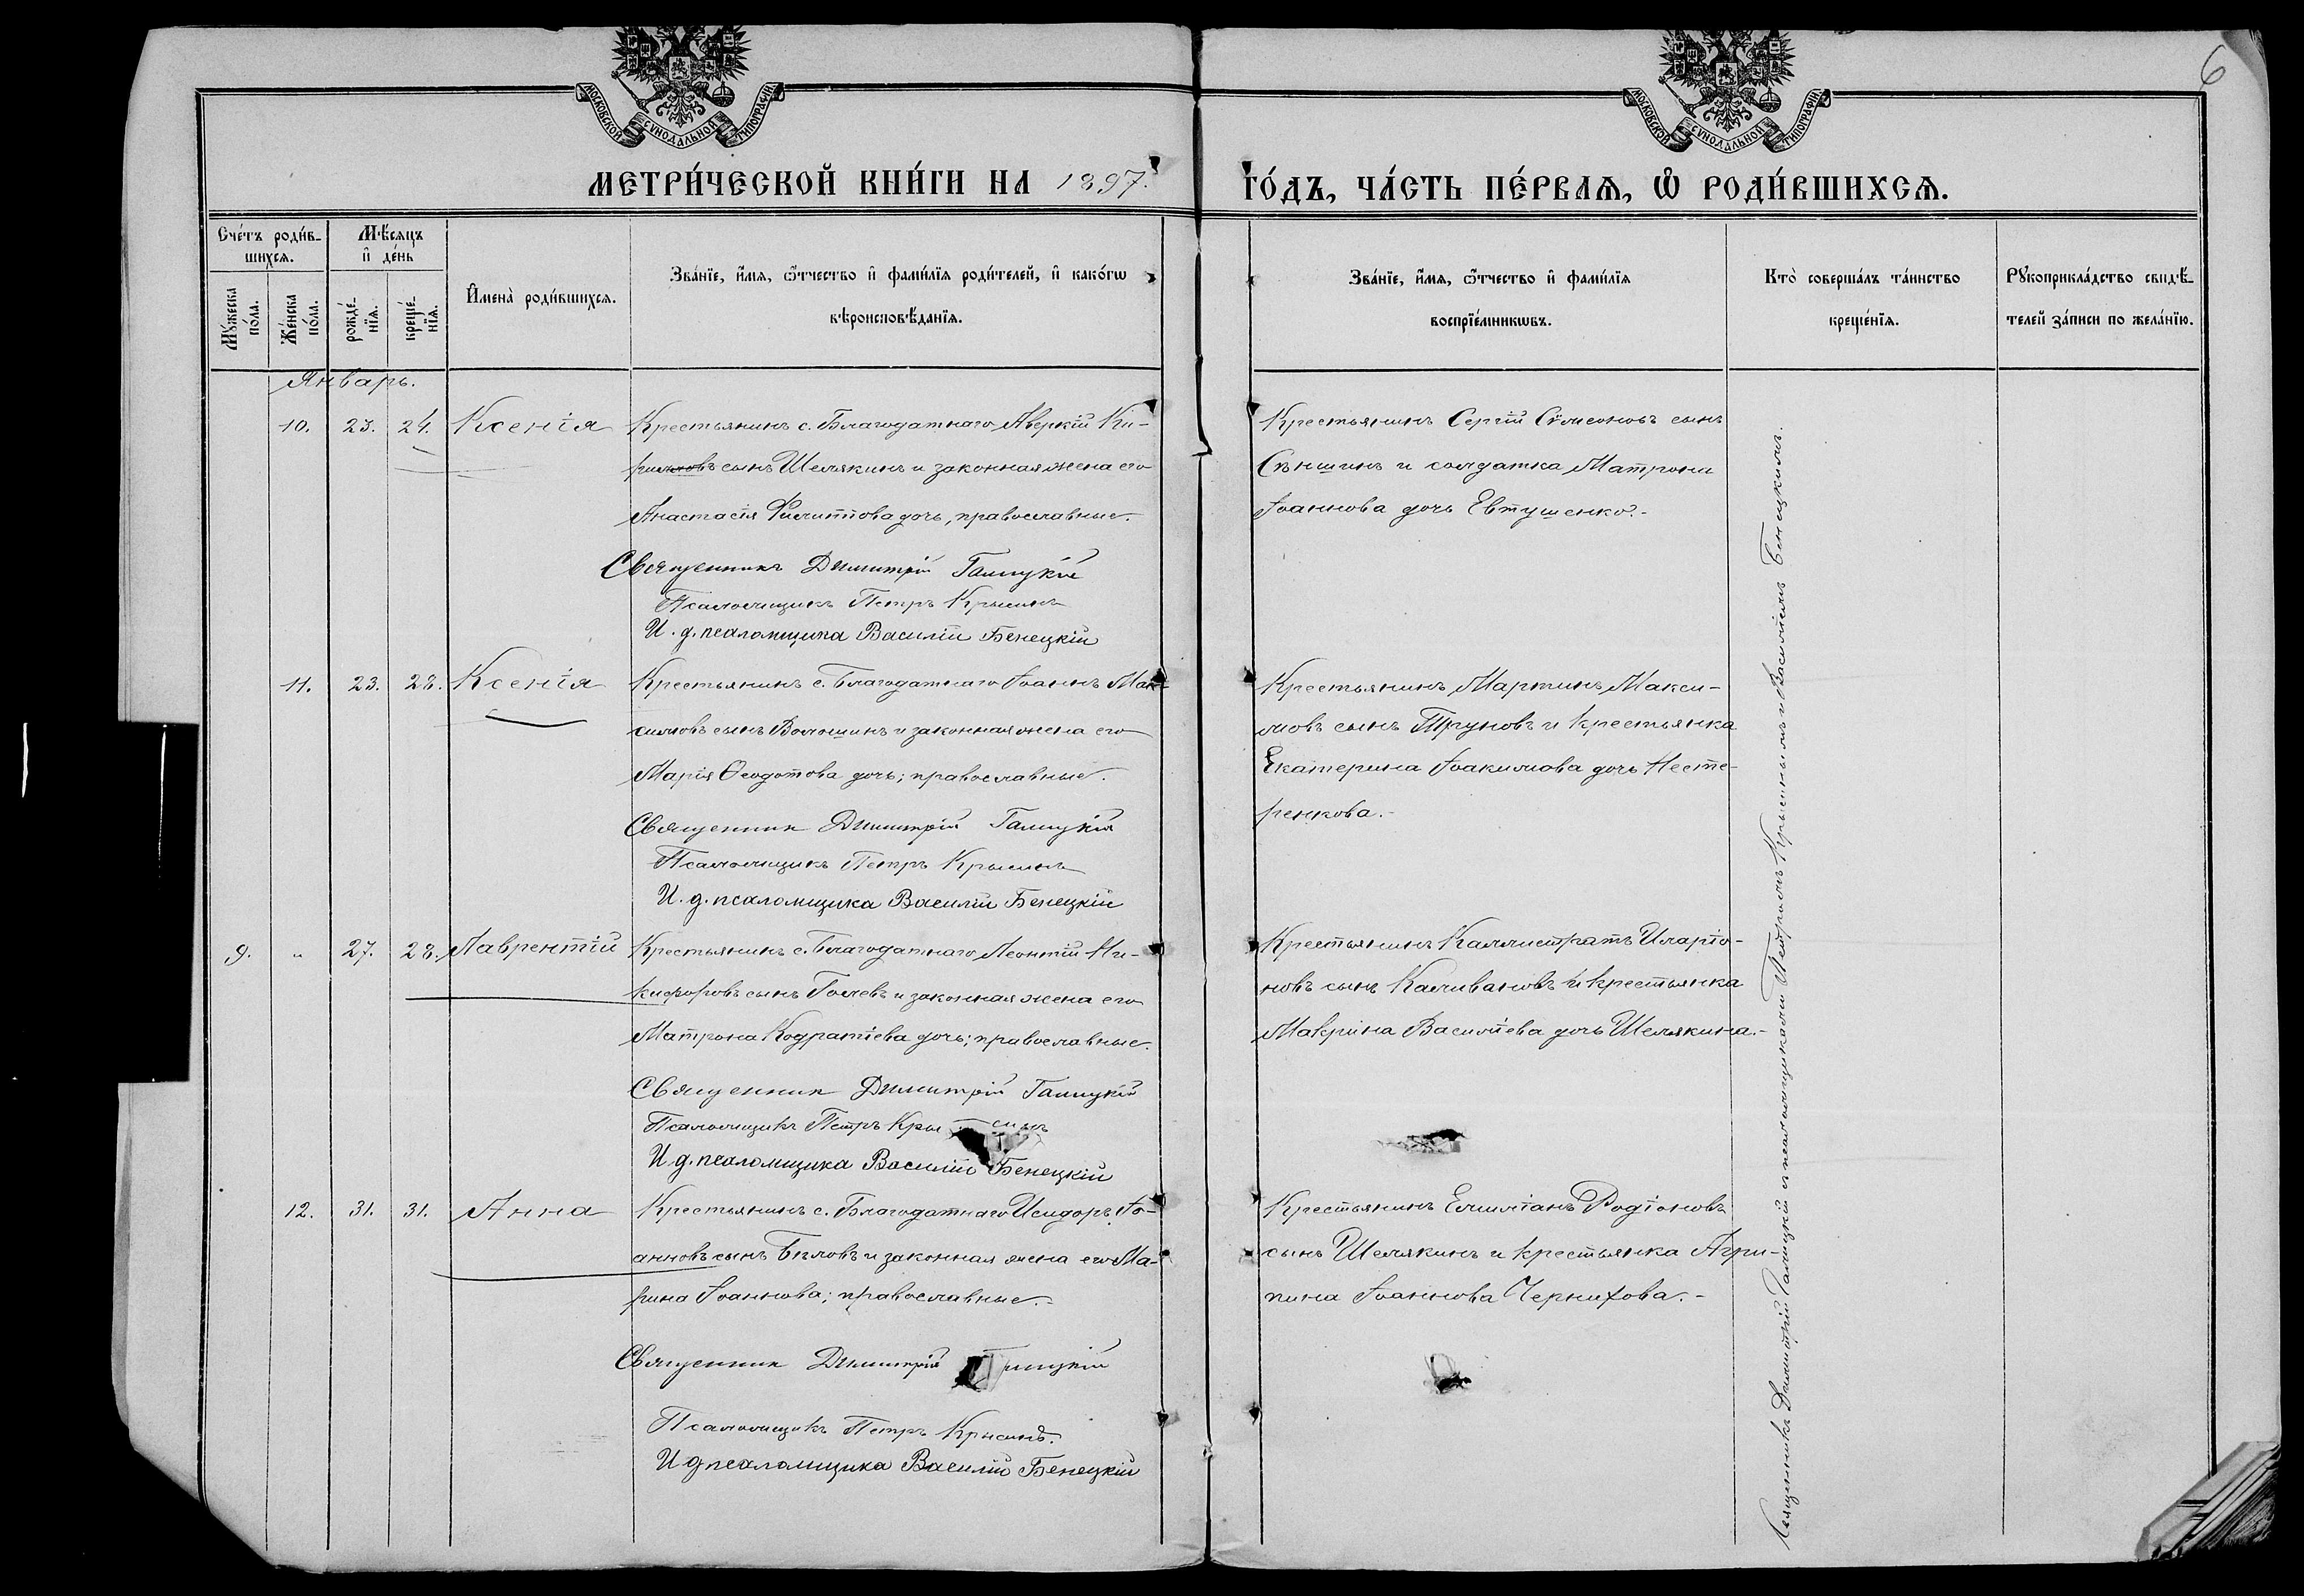 6
МОСКОВСКОЙ СУНОДАЛЬНОЙ ТИПОГРАФІИ
МОСКОВСКОЙ СУНОДАЛЬНОЙ ТИПОГРАФІИ
МЕТРИ́ЧЕСКОЙ КНИ́ГИ НА 1897.
ГО́ДЪ, ЧА́СТЬ ПЕ́РВАѦ, Ѽ РОДИ́ВШИХСѦ.
Сче́тъ роди́в-
шихсѧ.
Мѣ́сѧцъ
и҆ де́нь
Мꙋ́жеска
по́ла.
Же́нска
по́ла.
рожде́-
нїѧ.
креще́-
нїѧ.
И҆мена̀ роди́вшихсѧ.
Зва́нїе, и҆́мѧ, ѻ҆́тчество и҆ фами́лїѧ роди́телей, и҆ како́гѡ
вѣроисповѣ́данїѧ.
Зва́нїе, и҆́мѧ, ѻ҆́тчество и҆ фами́лїѧ
воспрїе́мникѡвъ.
Кто̀ соверша́лъ та́инство
креще́нїѧ.
Рꙋкоприкла́дство свидѣ́-
телей за́писи по жела́нїю.
Январь.
10. 23. 24. Ксенія
Крестьянинъ с. Благодатнаго Аверкій Ки-
рилловъ сынъ Шелякинъ и законная жена его
Анастасія Филиппова дочь, православные.
Священникъ Димитрій Галицкій
Псаломщикъ Петръ Крысинъ
И. д. псаломщика Василій Бенецкій
Крестьянинъ Сергій Сѵмеоновъ сынъ
Сѣншинъ и солдатка Матрона
Іоаннова дочь Евтушенко.-
11. 23. 28. Ксенія
Крестьянинъ с. Благодатнаго Іоаннъ Мак-
симовъ сынъ Волошинъ и законная жена его
Марія Ѳеодотова дочь; православные.
Священник Димитрій Галицкій
Псаломщикъ Петръ Крысинъ
И. д. псаломщика Василій Бенецкій
Крестьянинъ Мартинъ Макси-
мовъ сынъ Труновъ и крестьянка
Екатерина Іоакимова дочь Несте-
ренкова.-
9. " 27. 28. Лаврентій
Крестьянинъ с. Благодатнаго Леонтій Ни-
кифоровъ сынъ Голевъ и законная жена его
Матрона Кодратіева дочь; православные.
Священник Димитрій Галицкій
Псаломщикъ Петръ Крысинъ
И. д. псаломщика Василій Бенецкій
Крестьянинъ Каллистратъ Иларіо-
новъ сынъ Каливановъ и крестьянка
Маврина Василіева дочь Шелякина.-
12. 31. 31. Анна
Крестьянинъ с. Благодатнаго Исидоръ Іо-
анновъ сынъ Бѣловъ и законная жена его Ма-
рина Іоаннова; православные.-
Священник Димитрій Галицкій
Псаломщикъ Петръ Крысинъ.
И д псаломщика Василій Бенецкій
Крестьянинъ Емиліанъ Родіоновъ
сынъ Шелякинъ и крестьянка Агри-
пина Іоаннова Чернихова.-
Священникъ Димитрій Галицкій и псаломщиками Петромъ Крысинымъ и Василіемъ Бенецкимъ.